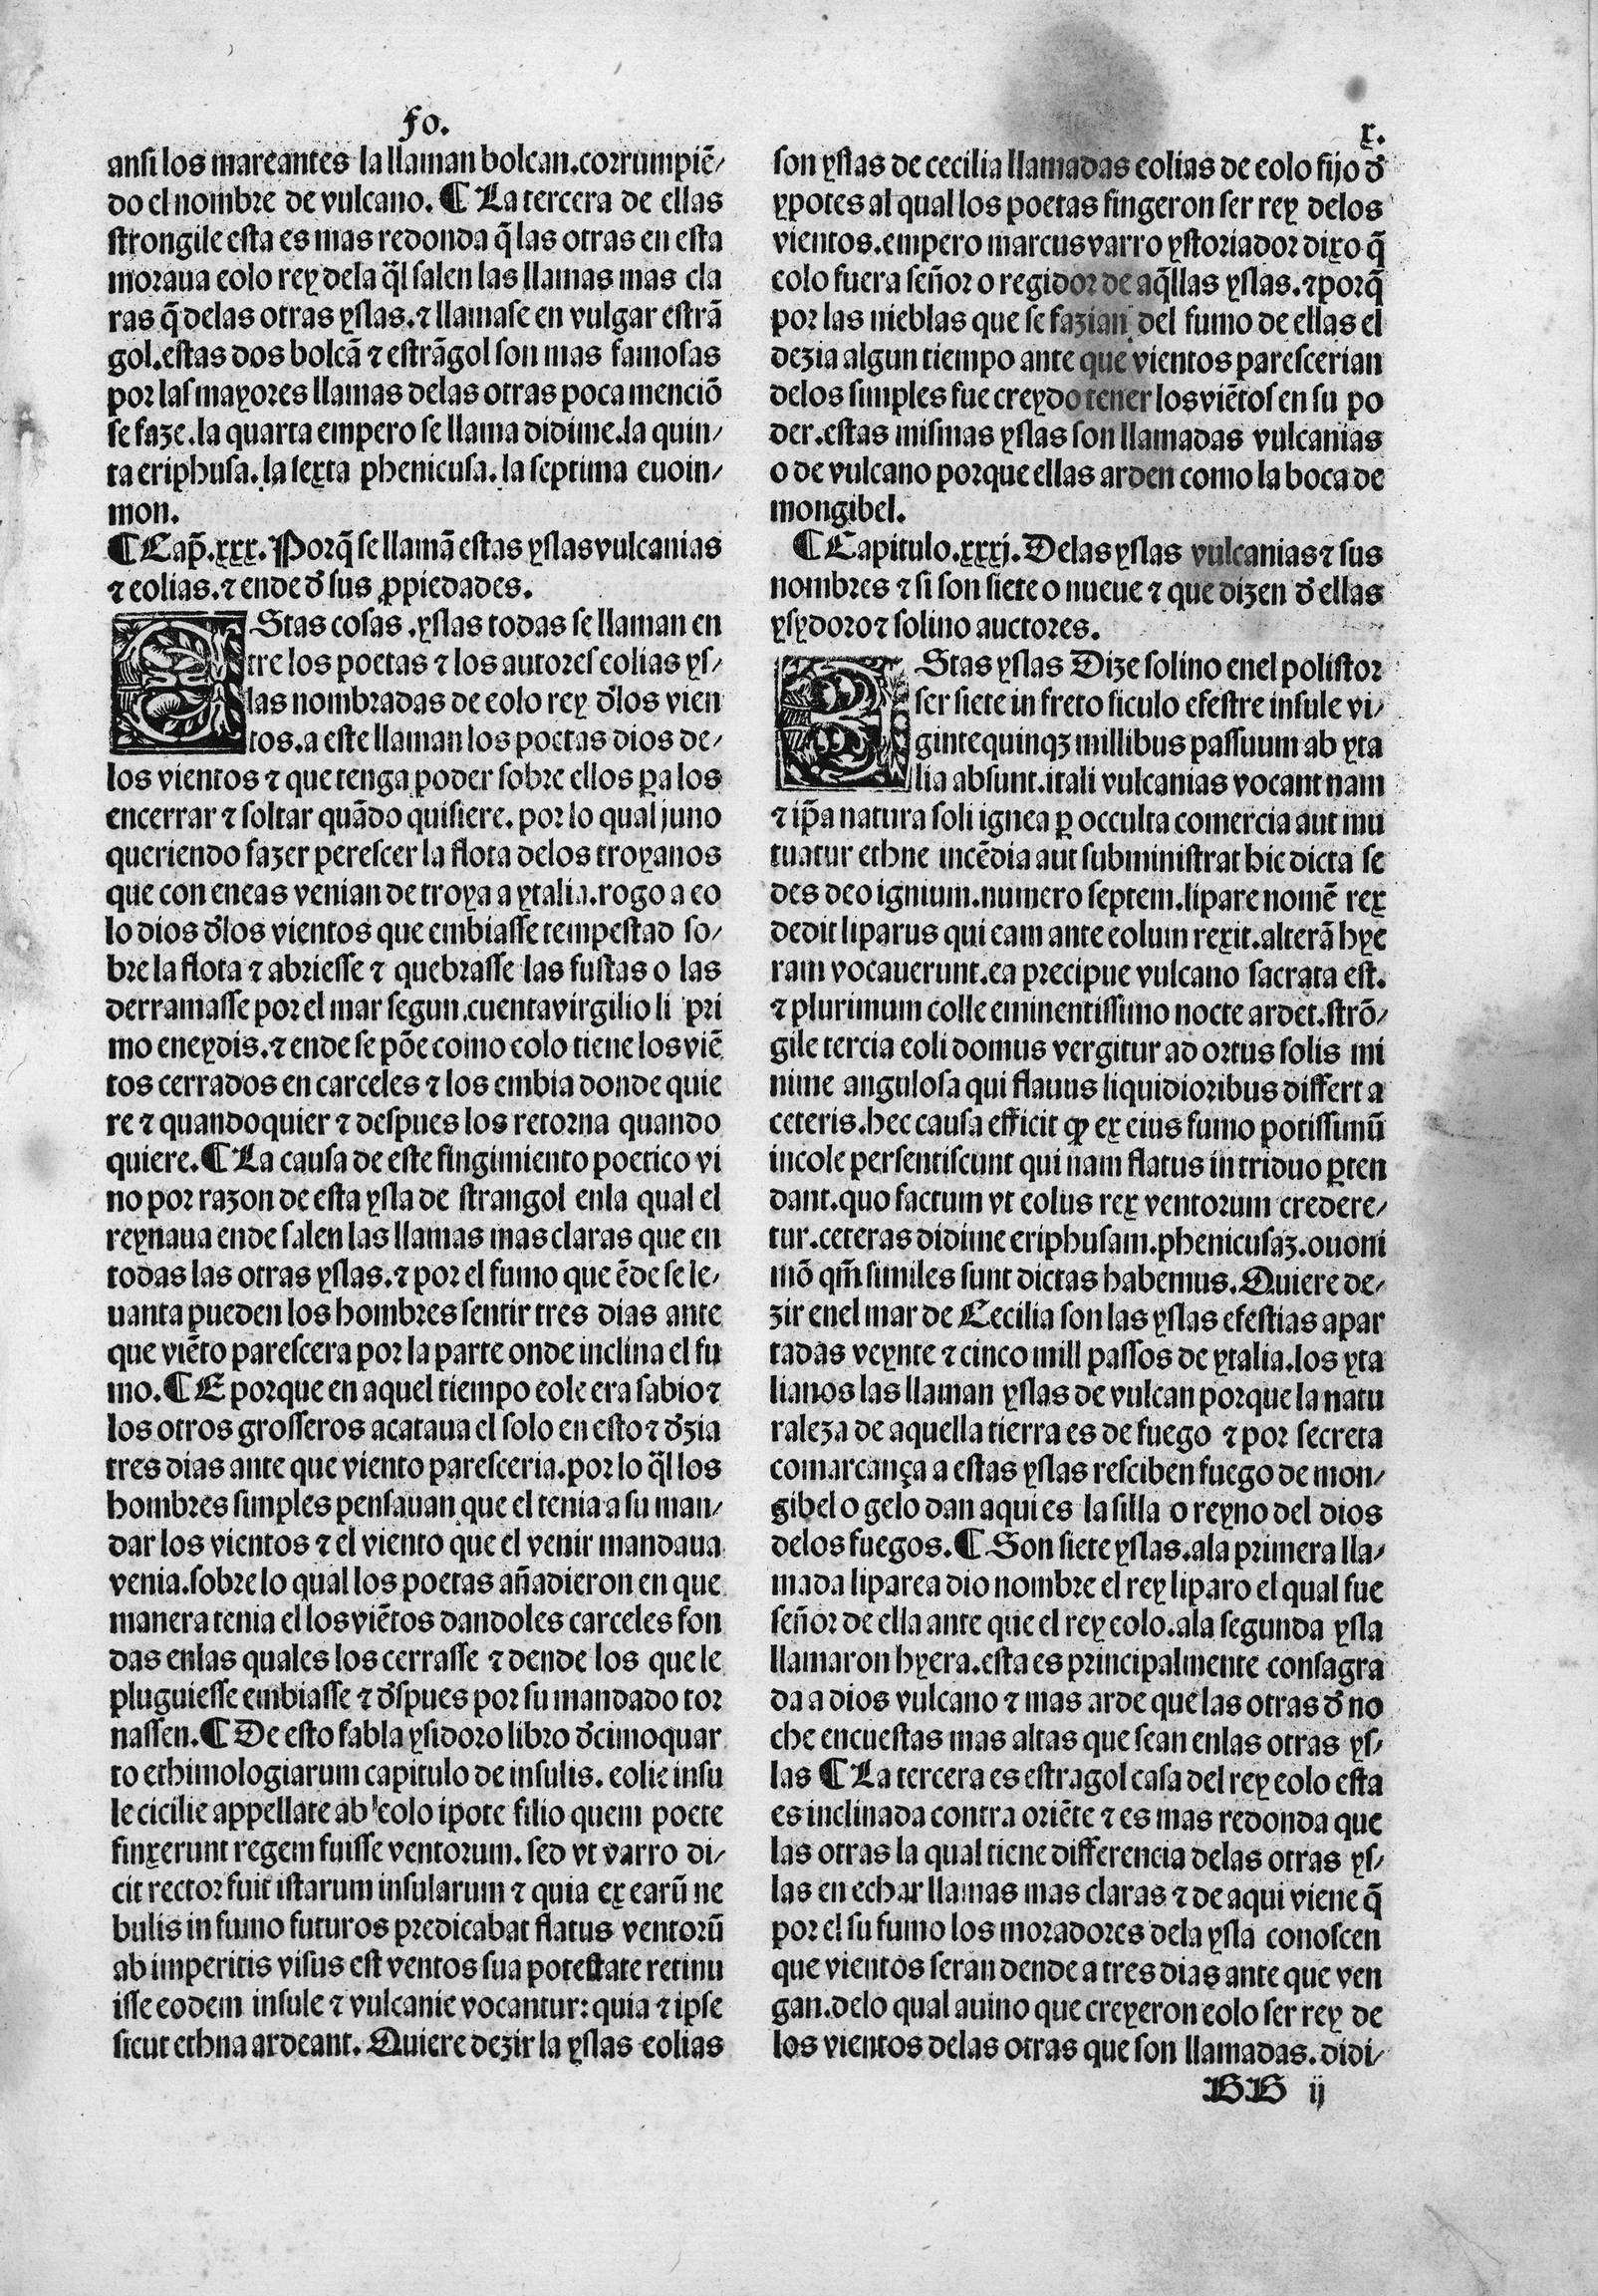 fo.
x.
ansi los mareantes la llaman bolcan.corrumpiẽ/
do el nombre de vulcano. ¶ La tercera de ellas
strongile esta es mas redonda q̃ las otras en esta
moraua eolo rey dela q̃l salen las llamas mas cla
ras q̃ delas otras yslas.⁊ llamase en vulgar estrã
gol.estas dos bolcã ⁊ estrãgol son mas famosas
por las mayores llamas delas otras poca menciõ
se faze.la quarta empero se llama didime.la quin/
ta eriphusa.la sexta phenicusa.la septima euoin/
mon.
¶ Cap̃.xxx.Porq̃ se llamã estas yslas vulcanias
⁊ eolias.⁊ ende d̃ sus ꝓpiedades.
EStas cosas.yslas todas se llaman en
tre los poetas ⁊ los autores eolias ys/
las nombradas de eolo rey d̃los vien
tos.a este llaman los poetas dios de/
los vientos ⁊ que tenga poder sobre ellos ꝑa los
encerrar ⁊ soltar quãdo quisiere.por lo qual juno
queriendo fazer perescer la flota delos troyanos
que con eneas venian de troya a ytalia.rogo a eo
lo dios d̃los vientos que embiasse tempestad so/
bre la flota ⁊ abriesse ⁊ quebrasse las fustas o las
derramasse por el mar segun.cuenta virgilio li pri
mo eneydis.⁊ ende se põe como eolo tiene los viẽ
tos cerrados en carceles ⁊ los embia donde quie
re ⁊ quandoquier ⁊ despues los retorna quando
quiere.¶ La causa de este fingimiento poetico vi
no por razon de esta ysla de strangol enla qual el
reynaua ende salen las llamas mas claras que en
todas las otras yslas.⁊ por el fumo que ẽde se le/
uanta pueden los hombres sentir tres dias ante
que viẽto parescera por la parte onde inclina el fu
mo.¶ E porque en aquel tiempo eole era sabio ⁊
los otros grosseros acataua el solo en esto ⁊ d̃zia
tres dias ante que viento paresceria.por lo q̃l los
hombres simples pensauan que el tenia a su man/
dar los vientos ⁊ el viento que el venir mandaua
venia.sobre lo qual los poetas añadieron en que
manera tenia el los viẽtos dandoles carceles fon
das enlas quales los cerrasse ⁊ dende los que le
pluguiesse embiasse ⁊ d̃spues por su mandado tor
nassen.¶ De esto fabla ysidoro libro d̃cimoquar
to ethimologiarum capitulo de insulis.eolie insu
le cicilie appellate ab eolo ipote filio quem poete
finxerunt regem fuisse ventorum.sed vt varro di/
cit rector fuit istarum insularum ⁊ quia ex earũ ne
bulis in fumo futuros predicabat flatus ventorũ
ab imperitis visus est ventos sua potestate retinu
isse eodem insule ⁊ vulcanie vocantur:quia ⁊ ipse
sicut ethna ardeant. Quiere dezir la yslas eolias
son ystas de cecilia llamadas eolias de eolo fijo d̃
ypotes al qual los poetas fingeron ser rey delos
vientos.empero marcus varro ystoriador dixo q̃
eolo fuera señor o regidor de aq̃llas yslas.⁊ porq̃
por las nieblas que se fazian del fumo de ellas el
dezia algun tiempo ante que vientos parescerian
delos simples fue creydo tener los viẽtos en su po
der.estas mismas yslas son llamadas vulcanias
o de vulcano porque ellas arden como la boca de
mongibel.
¶ Capitulo.xxxj.Delas yslas vulcanias ⁊ sus
nombres ⁊ si son siete o nueue ⁊ que dizen d̃ ellas
ysydoro ⁊ solino auctores.
EStas yslas Dize solino enel polistor
ser siete in freto siculo efestre insule vi/
gintequinqꝫ millibus passuum ab yta
lia absunt.itali vulcanias vocant nam
⁊ ip̃a natura soli ignea ꝑ occulta comercia aut mu
tuatur ethne incẽdia aut subministrat hic dicta se
des deo ignium.numero septem.lipare nomẽ rex
dedit liparus qui eam ante eolum rexit.alterã hye
ram vocauerunt.ea precipue vulcano sacrata est.
⁊ plurimum colle eminentissimo nocte ardet.strõ/
gile tercia eoli domus vergitur ad ortus solis mi
nime angulosa qui flauus liquidioribus differt a
ceteris.hec causa efficit ꝙ ex eius fumo potissimũ
incole persentiscunt qui nam flatus in triduo ꝑten
dant.quo factum vt eolus rex ventorum credere/
tur.ceteras didime eriphusam.phenicusaꝫ.ouoni
mõ qm̃ similes sunt dictas habemus. Quiere de/
zir enel mar de Cecilia son las yslas efestias apar
tadas veynte ⁊ cinco mill passos de ytalia.los yta
lianos las llaman yslas de vulcan porque la natu
raleza de aquella tierra es de fuego ⁊ por secreta
comarcança a estas yslas resciben fuego de mon/
gibel o gelo dan aqui es la silla o reyno del dios
delos fuegos.¶ Son siete yslas.ala primera lla/
mada liparea dio nombre el rey liparo el qual fue
señor de ella ante que el rey eolo.ala segunda ysla
llamaron hyera.esta es principalmente consagra
da a dios vulcano ⁊ mas arde que las otras d̃ no
che encuestas mas altas que sean enlas otras ys/
las ¶ La tercera es estragol casa del rey eolo esta
es inclinada contra oriẽte ⁊ es mas redonda que
las otras la qual tiene differencia delas otras ys/
las en echar llamas mas claras ⁊ de aqui viene q̃
por el su fumo los moradores dela ysla conoscen
que vientos seran dende a tres dias ante que ven
gan.delo qual auino que creyeron eolo ser rey de
los vientos delas otras que son llamadas.didi/
BB ij